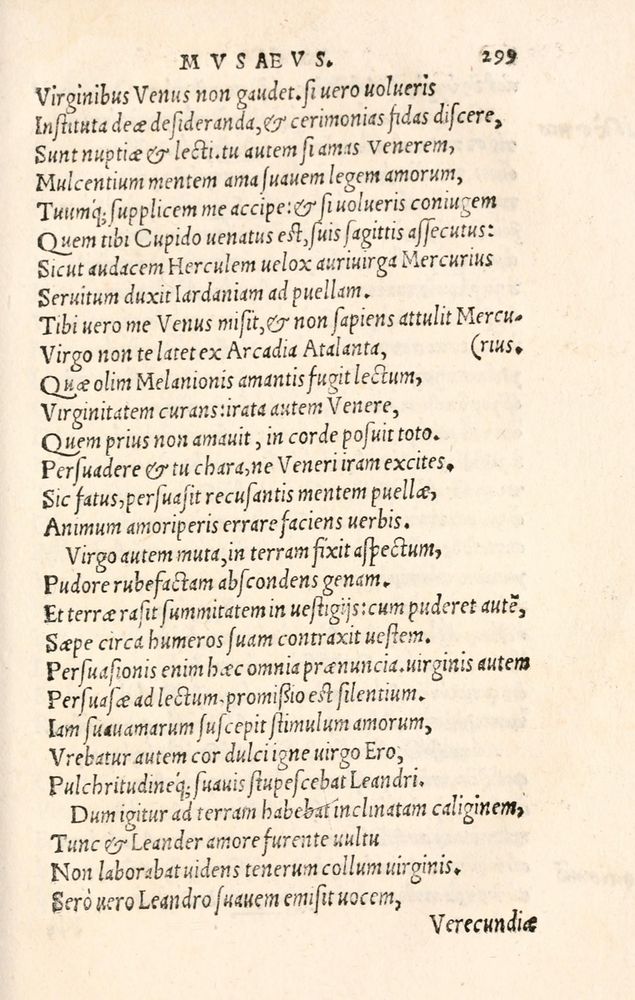 MVSAEVS. 299
Virginibus Venus non gaudet. si uero uolueris
Instituta deæ desideranda, & cerimonias fidas discere,
Sunt nuptiæ & lecti. tu autem si amas Venerem,
Mulcentium mentem ama suauem legem amorum,
Tuumq́; supplicem me accipe: & si uolueris coniugem
Quem tibi Cupido uenatus est, suis sagittis assecutus:
Sicut audacem Herculem uelox auriuirga Mercurius
Seruitum duxit Iardaniam ad puellam.
Tibi uero me Venus misit, & non sapiens attulit Mercu-
Virgo non te latet ex Arcadia Atalanta, (rius.
Quæ olim Melanionis amantis fugit lectum,
Virginitatem curans: irata autem Venere,
Quem prius non amauit, in corde posuit toto.
Persuadere & tu chara, ne Veneri iram excites.
Sic fatus, persuasit recusantis mentem puellæ,
Animum amoriperis errare faciens uerbis.
Virgo autem muta, in terram fixit aspectum,
Pudore rubefactam abscondens genam.
Et terræ rasit summitatem in uestigijs: cum puderet autē,
Sæpe circa humeros suam contraxit uestem.
Persuasionis enim hæc omnia prænuncia. uirginis autem
Persuasæ ad lectum, promissio est silentium.
Iam suauamarum suscepit stimulum amorum,
Vrebatur autem cor dulci igne uirgo Ero,
Pulchritudineq́; suauis stupescebat Leandri.
Dum igitur ad terram habebat inclinatam caliginem,
Tunc & Leander amore furente uultu
Non laborabat uidens tenerum collum uirginis.
Serò uero Leandro suauem emisit uocem,
Verecundiæ